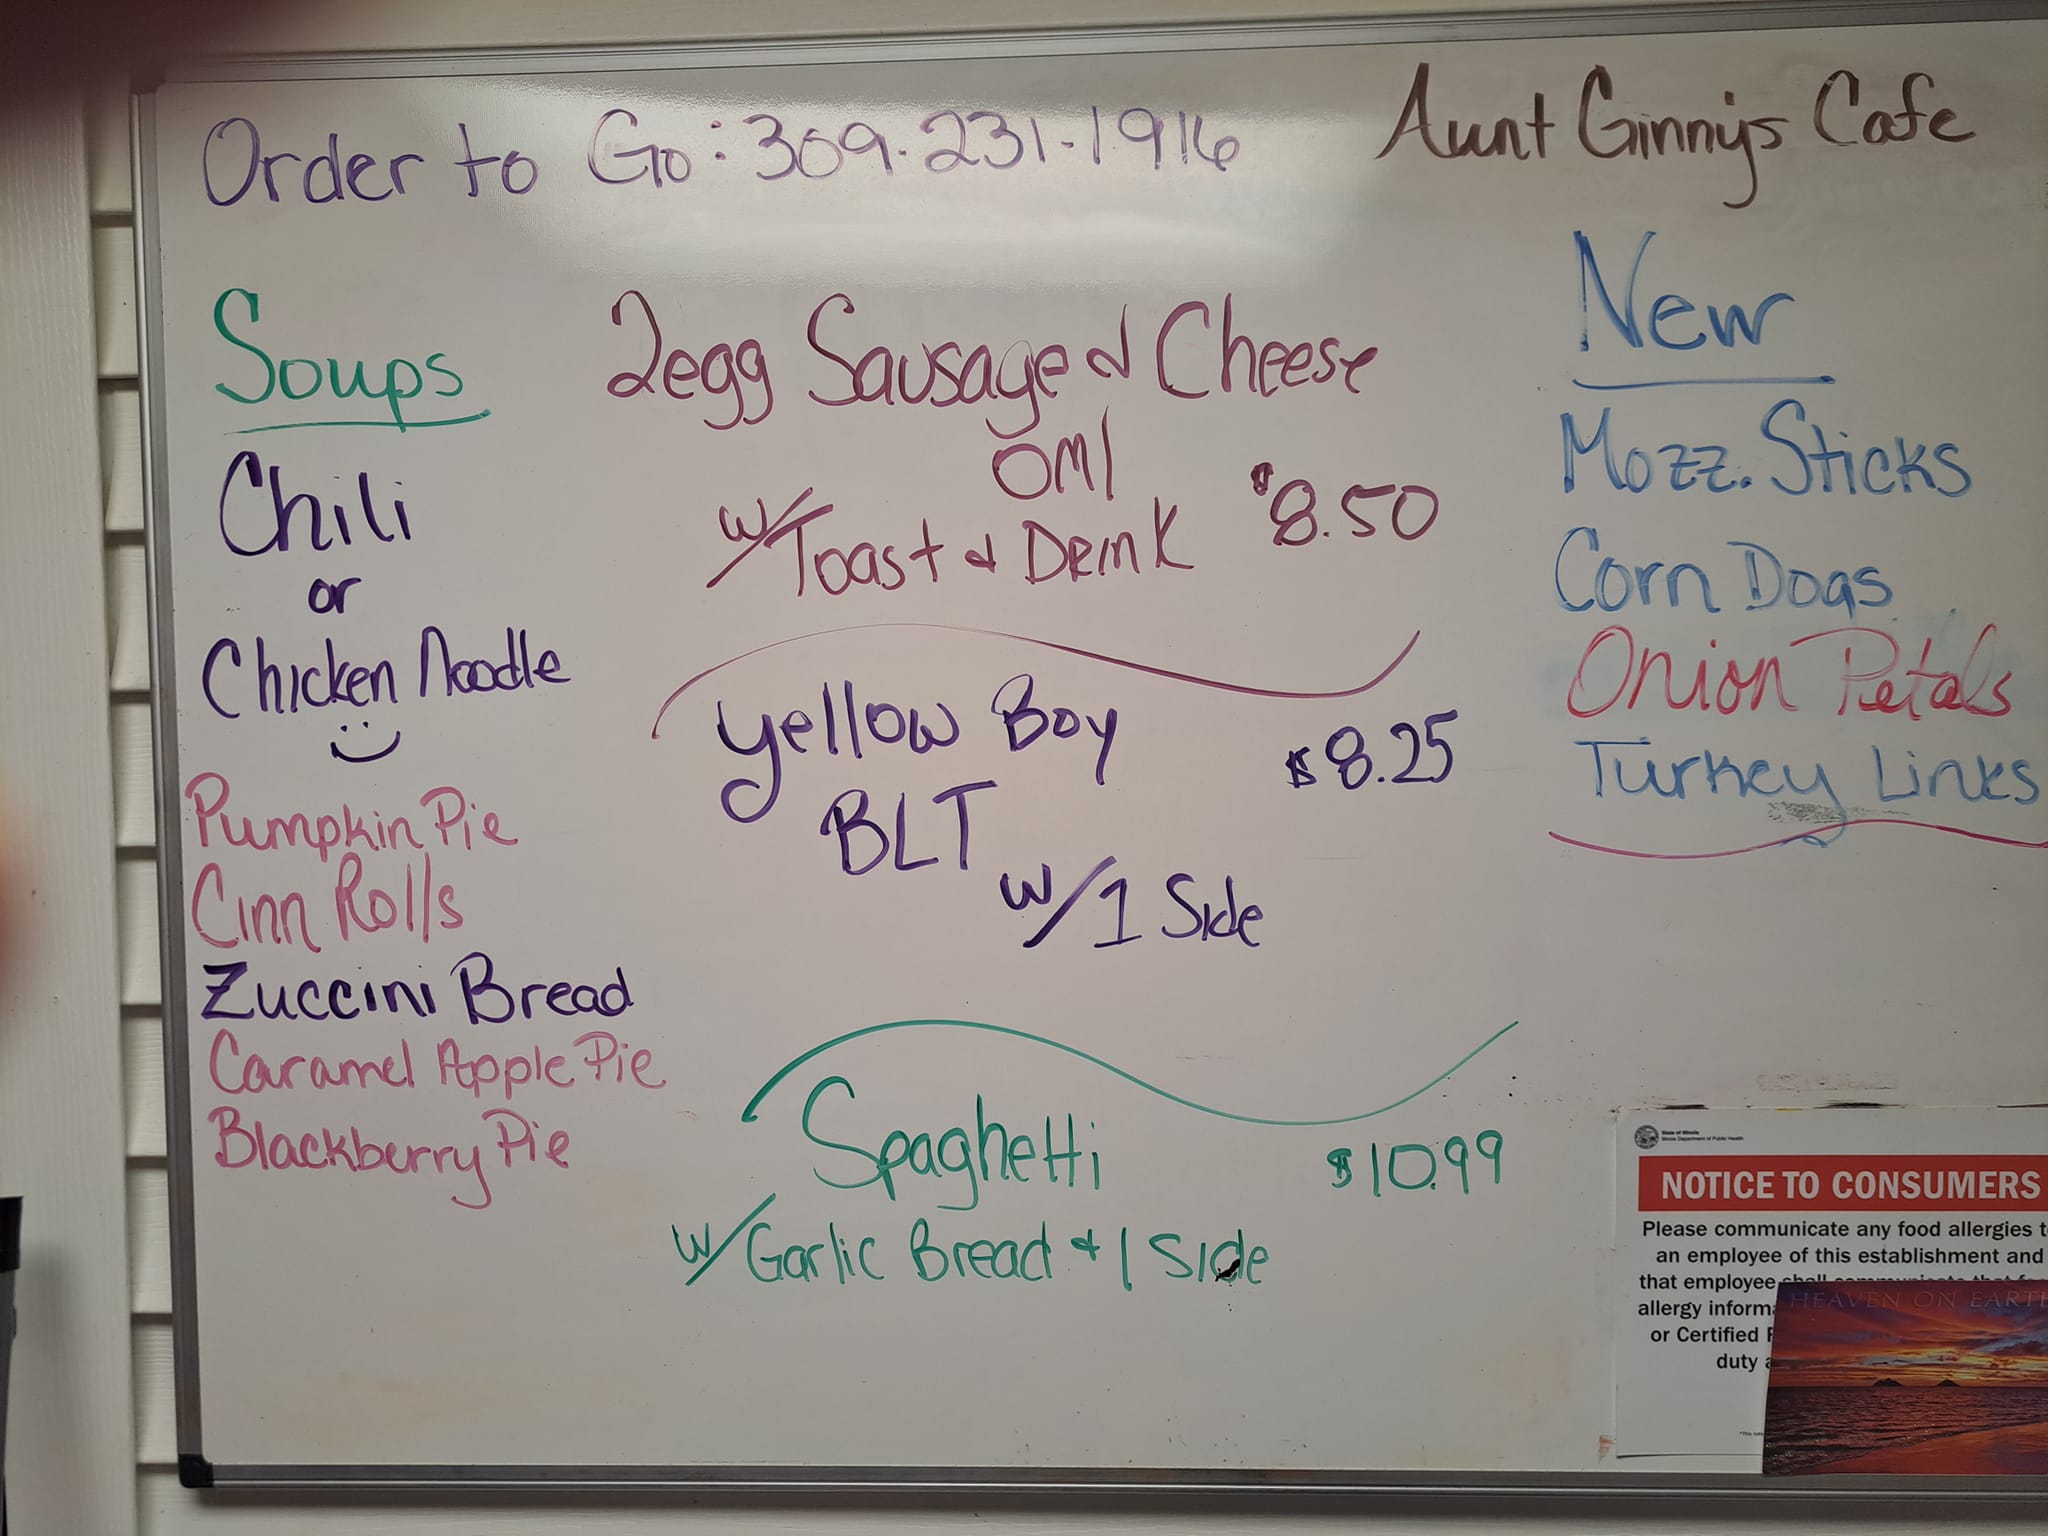 Order to Go: 309.231.1916
Aunt Ginny's Cafe
Soups
Chili
or
Chicken Noodle
Pumpkin Pie
Cinn Rolls
Zuccini Bread
Caramel Apple Pie
Blackberry Pie
2egg Sausage & Cheese
Oml
w/Toast & Drink $8.50
Yellow Boy $8.25
BLT
w/1 Side
Spaghetti $10.99
w/Garlic Bread & 1 Side
New
Mozz. Sticks
Corn Dogs
Onion Petals
Turkey Links
State of Illinois
Illinois Department of Public Health
NOTICE TO CONSUMERS
Please communicate any food allergies t
an employee of this establishment and
that employee shall communicate that f
allergy inform
or Certified
duty
HEAVEN ON EARTH